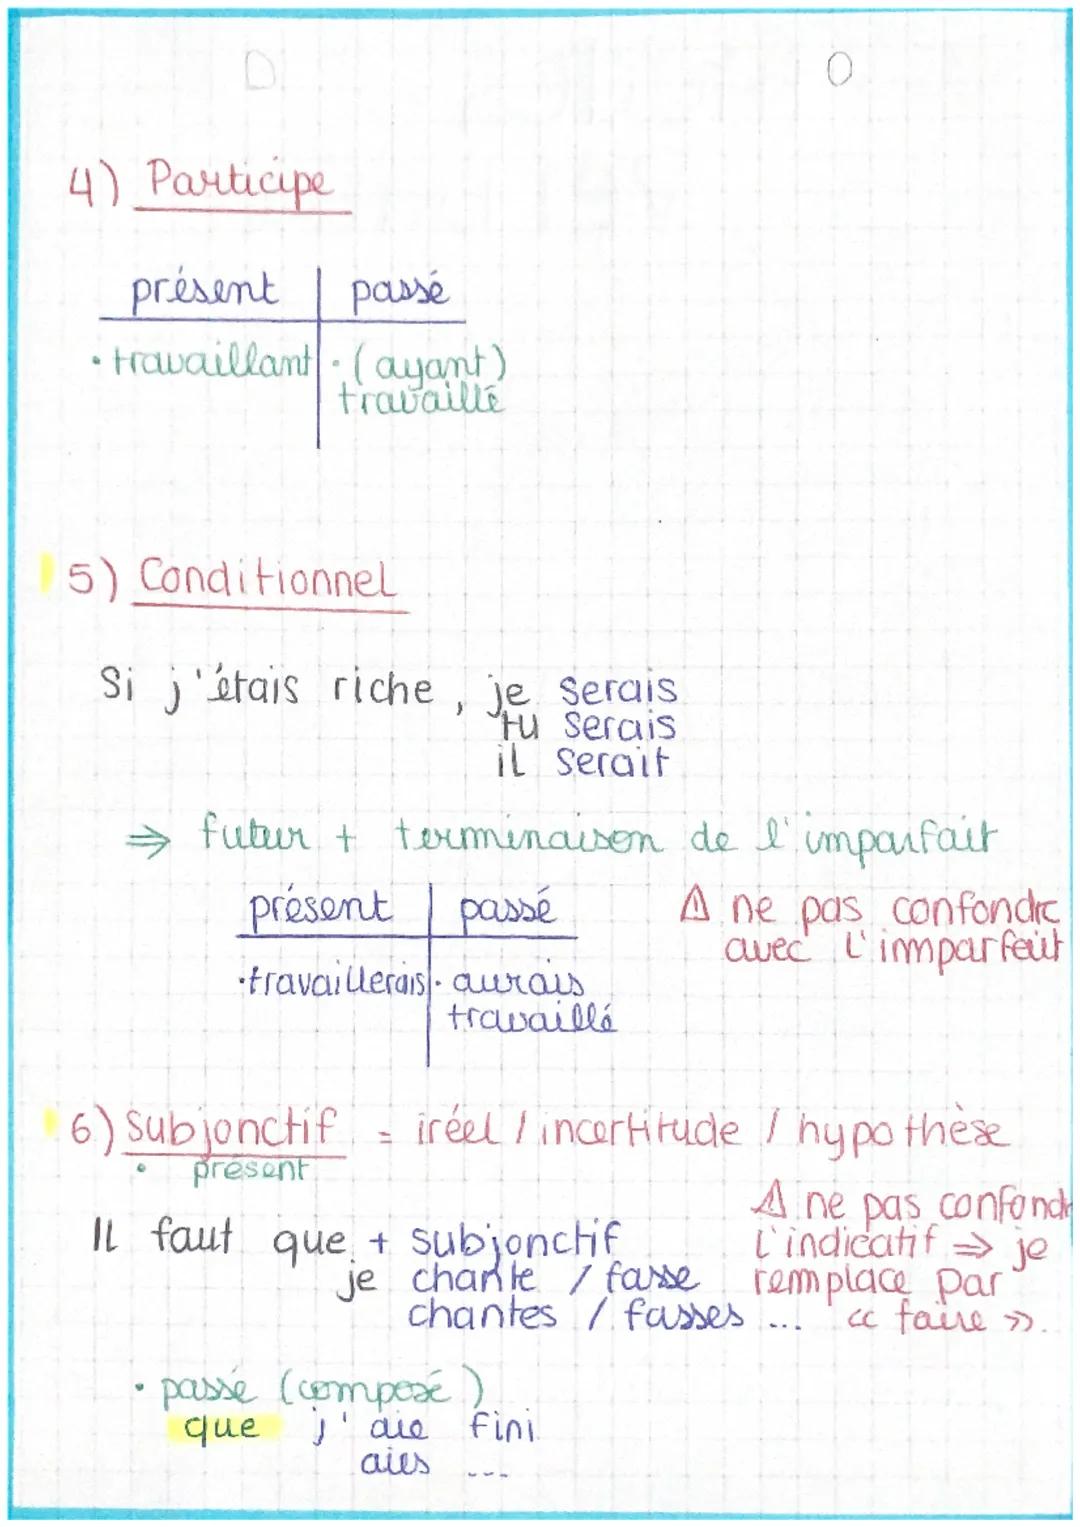 4) Participe
présent | passé
• travaillant | • (ayant)
travaillé
5) Conditionnel
Si j'étais riche, je serais
tu serais
il serait
⇒ futur + terminaison de l'imparfait
présent | passé
⚠ ne pas confondre
avec l'imparfait
• travaillerais | • aurais
travaillé
6) Subjonctif = iréel / incertitude / hypothèse
• présent
⚠ ne pas confondr
Il faut que + subjonctif
l'indicatif ⇒ je
je chante / fasse
remplace par
chantes / fasses ...
<< faire >>.
• passé (composé)
que j'aie fini
aies ...